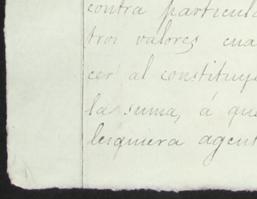 contra particula
troi valores cua
cer al constituye
la suma, á que
lesquiera agent